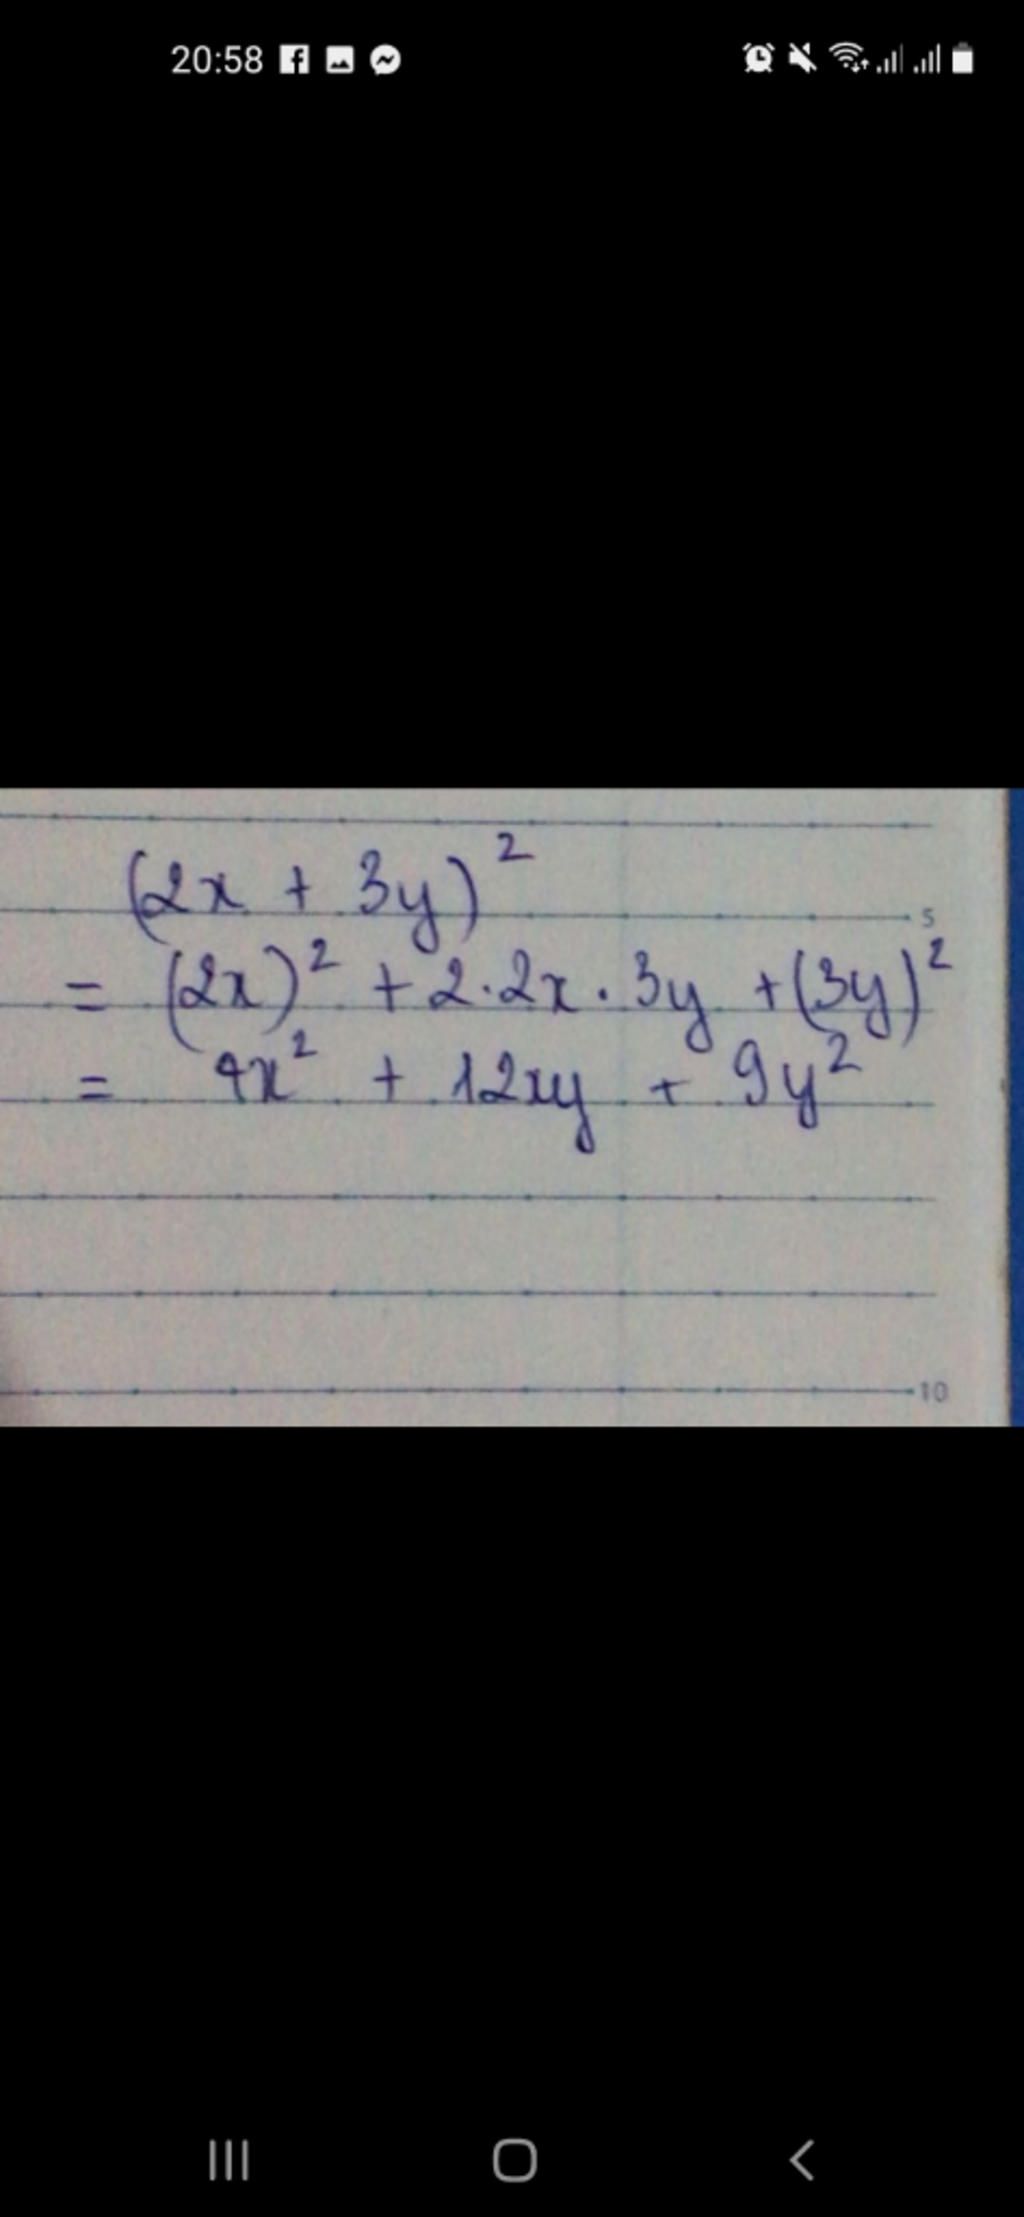 20:58
(2x + 3y)²
= (2x)² + 2.2x.3y + (3y)²
= 4x² + 12xy + 9y²
5
10